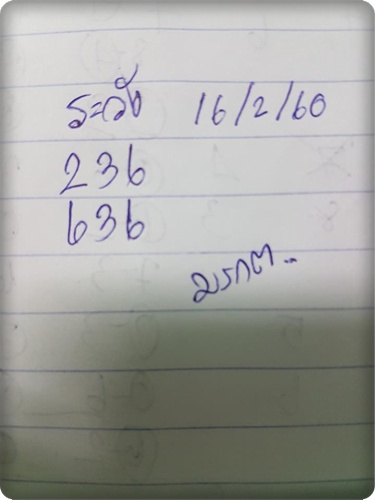 ระวัง 16/2/60
236
636
มรกต..